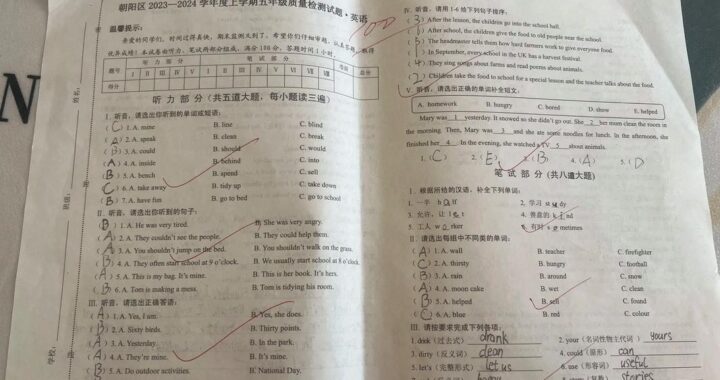 朝阳区 2023—2024 学年度上学期五年级质量检测试题·英语
100
温馨提示：
亲爱的同学们，时间过得真快，期末监测又到了，希望你们仔细审题，认真答题，取得
优异成绩！本试卷由听力、笔试两部分组成，满分100分，答题时间1小时。
题号 听力部分 笔试部分 总分
I II III IV V I II III IV V VI VII VIII
得分
听力部分（共五道大题，每小题读三遍）
I. 听音，请选出你听到的单词或短语：
(C) 1. A. mine B. line C. blind
(A) 2. A. speak B. clean C. break
(B) 3. A. could B. should C. would
(A) 4. A. inside B. behind C. into
(A) 5. A. bench B. spend C. sell
(C) 6. A. take away B. tidy up C. take down
(B) 7. A. have fun B. go to bed C. go to school
II. 听音，请选出你听到的句子：
(B) 1. A. He was very tired. B. She was very angry.
(A) 2. A. They couldn't see the people. B. They could help them.
(A) 3. A. You shouldn't jump on the bed. B. You shouldn't walk on the grass.
(B) 4. A. They often start school at 9 o'clock. B. We usually start school at 8 o'clock.
(A) 5. A. This is my bag. It's mine. B. This is her book. It's hers.
(B) 6. A. Tom is making a mess. B. Tom is tidying his room.
III. 听音，请选出正确答语：
(A) 1. A. Yes, I am. B. Yes, she does.
(B) 2. A. Sixty birds. B. Thirty points.
(A) 3. A. Yesterday. B. In the park.
(A) 4. A. They're mine. B. It's mine.
(B) 5. A. Do outdoor activities. B. National Day.
姓名：
班级：
学校：
IV. 听音，请用 1-6 给下列句子排序。
(3) After the lesson, the children go into the school hall.
(6) After school, the children give the food to old people near the school.
( ) The headmaster tells them how hard farmers work to give everyone food.
(1) In September, every school in the UK has a harvest festival.
(4) They sing songs about farms and read poems about animals.
(2) Children take the food to school for a special lesson and the teacher talks about the food.
V. 听音，请选出正确的单词补全短文：
A. homework B. hungry C. bored D. show E. helped
Mary was 1 yesterday. It snowed so she didn't go out. She 2 her mum clean the room in
the morning. Then, Mary was 3 and she ate some noodles for lunch. In the afternoon, she
finished her 4 . In the evening, she watched a TV 5 about animals.
1. (C) 2. (E) 3. (B) 4. (A) 5. (D)
笔试部分（共八道大题）
I. 根据所给的汉语，补全下列单词：
1. 一半 half 2. 学习 study
3. 允许，让 let 4. 善良的 kind
5. 工人 worker 6. 有时 sometimes
II. 请选出每组中不同类的单词：
(A) 1. A. wall B. teacher C. firefighter
(C) 2. A. thirsty B. hungry C. football
(B) 3. A. rain B. around C. snow
(A) 4. A. moon cake B. wet C. clean
(B) 5. A. helped B. sell C. found
(C) 6. A. blue B. red C. colour
III. 请按要求完成下列各项：
1. drink (过去式) drank 2. your (名词性物主代词) yours
3. dirty (反义词) clean 4. could (原形) can
5. let's (完整形式) let us 6. use (形容词) useful
happy stories